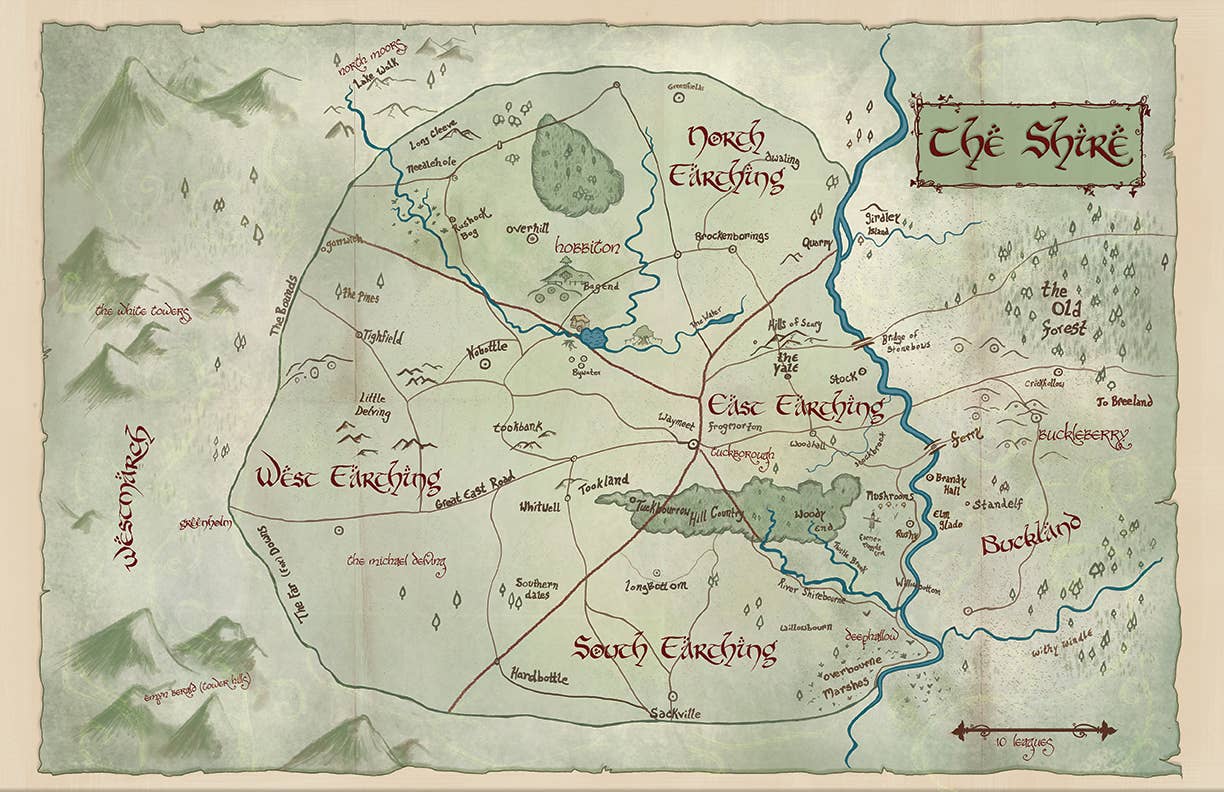 North Moors
Lake Walk
Greenfields
The Shire
Long Cleeve
North
Earthing
Needlehole
Dwaling
Rushock
Bog
Overhill
Hobbiton
Brockenborings
Quarry
Girdley
Island
Gamwich
Bag End
The Bounds
The Pines
The Old
Forest
The White Towers
Tighfield
The Water
Hills of Scary
Bridge of
Stonebows
Nobottle
Bywater
The
Yale
Stock
Crickhollow
To Breeland
Little
Delving
East Earthing
Tookbank
Waymeet
Frogmorton
Woodhall
Stockbrook
Ferry
Buckleberry
Tuckborough
West Earthing
Great East Road
Tookland
Whitwell
Brandy
Hall
Mushrooms
Standelf
Westmarch
Greenholm
Tuckbourrow Hill Country
Woody
End
Elm
Glade
Rushy
Buckland
The Far (Fox) Downs
The Michael Delving
Thistle Brook
Longbottom
Southern
dates
River Shirebourne
Willowbottom
Willowbourn
Deephallow
South Earthing
Withy Windle
Overbourne
Marshes
Hardbottle
Emyn Beraid (Tower Hills)
Sackville
10 Leagues